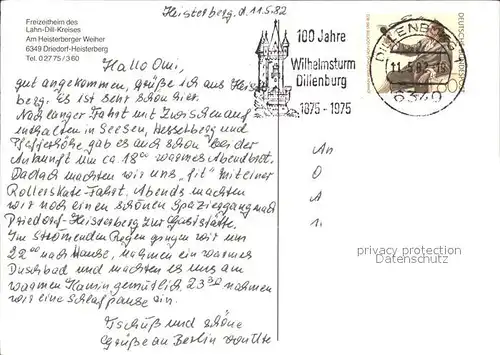 Freizeitheim des
Lahn-Dill-Kreises
Am Heisterberger Weiher
6349 Driedorf-Heisterberg
Tel. 02775/360
Heisterberg, d. 11.5.82
Hallo Omi,
gut angekommen, grüße ich aus Heister-
berg. Es ist sehr schön hier.
Nach langer Fahrt mit Zwischenauf-
enthalten in Seesen, Hesselberg und
höhe gab es auch schon bei der
Ankunft um ca. 18⁰⁰ warmes Abendbrot.
Danach machten wir uns "fit" mit einer
Rollerskate-Fahrt. Abends machten
wir noch einen schönen Spaziergang nach
Driedorf-Heisterberg zur Gaststätte.
Im strömenden Regen gingen wir um
22⁰⁰ nach Hause, nahmen ein warmes
Duschbad und machten es uns am
warmen Kamin gemütlich. 23³⁰ nahmen
wir eine Schlafpause ein.
Tschüß und schöne
Grüße an Berlin von Ute
100 Jahre
Wilhelmsturm
Dillenburg
1875-1975
DILLENBURG 1
11.5.82
6340
DEUTSCHE
80
An
O
A
1.
privacy protection
by www.ansichtskartenversand.com